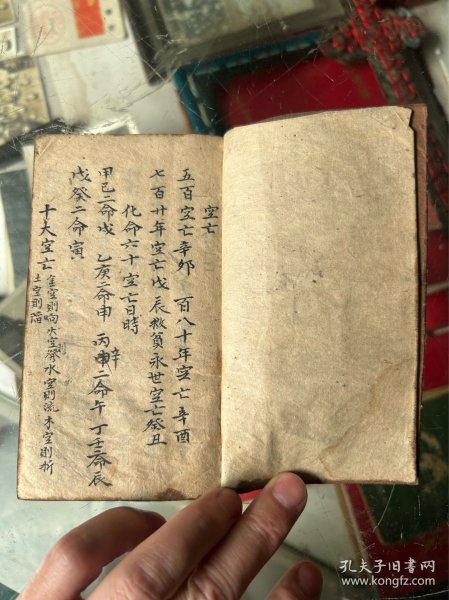 空亡
五百空亡辛卯 百八十年空亡辛酉
七百廿年空亡戊辰救貧永世空亡癸丑
化命六十空亡日時
甲己二命戌 乙庚二命申 丙辛二命午 丁壬二命辰
戊癸二命寅
十大空亡 金空則响火空則發水空則流木空則折
土空則陷
孔夫子旧书网
www.kongfz.com